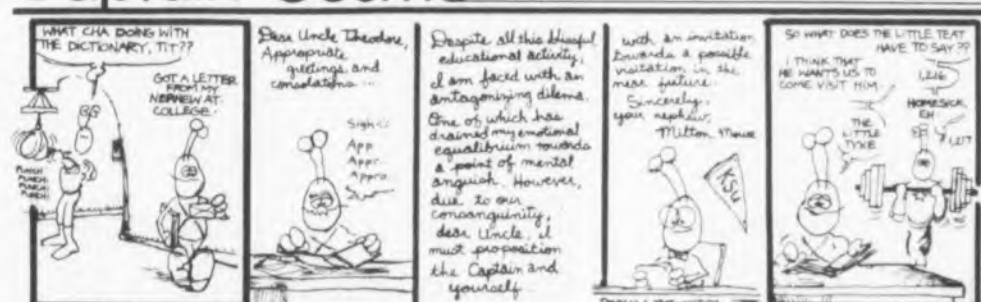 WHAT CHA DOING WITH
THE DICTIONARY, TIT??
GOT A LETTER
FROM MY
NEPHEW AT
COLLEGE.
PUNCH
PUNCH!
PUNCH!
PUNCH!
Dear Uncle Theodore,
Appropriate
greetings and
consolations ...
Sigh
App
Appr.
Appro
Despite all this blissful
educational activity,
I am faced with an
antagonizing dilema.
One of which has
drained my emotional
equalibrium towards
a point of mental
anguish. However,
due to our
consanguinity,
dear Uncle, I
must proposition
the Captain and
yourself
with an invitation
towards a possible
visitation in the
near future.
Sincerely,
your nephew,
Milton Mouse
KSU
SO WHAT DOES THE LITTLE TEAT
HAVE TO SAY??
I THINK THAT
HE WANTS US TO
COME VISIT HIM.
1,216
HOMESICK,
EH
1,217
THE
LITTLE
TYKE